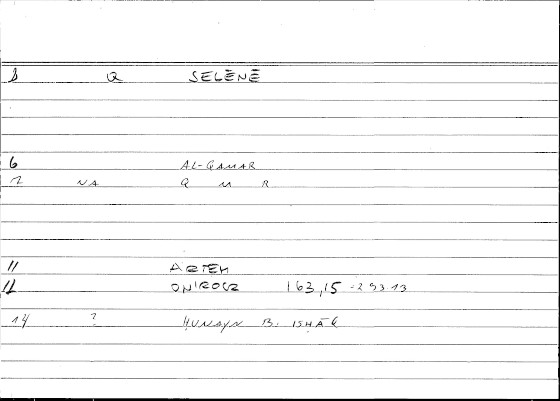 1 Q SELĒNĒ
6 AL-QAMAR
7 NA Q M R
11 ARTEM
12 ONIROCR 163,15 - 293.13
14 ? ḤUNAYN B. ISḤĀQ